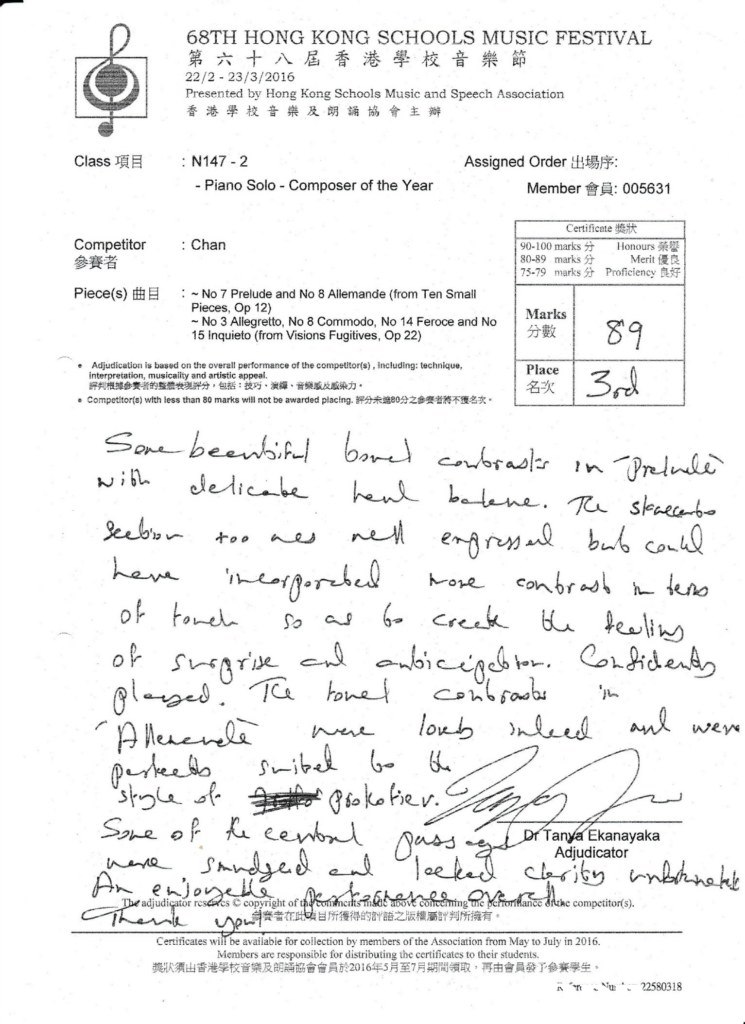 68TH HONG KONG SCHOOLS MUSIC FESTIVAL
第六十八屆香港學校音樂節
22/2 - 23/3/2016
Presented by Hong Kong Schools Music and Speech Association
香港學校音樂及朗誦協會主辦
Class 項目 : N147 - 2
- Piano Solo - Composer of the Year
Assigned Order 出場序:
Member 會員: 005631
Competitor : Chan
參賽者
Piece(s) 曲目 : ~ No 7 Prelude and No 8 Allemande (from Ten Small
Pieces, Op 12)
~ No 3 Allegretto, No 8 Commodo, No 14 Feroce and No
15 Inquieto (from Visions Fugitives, Op 22)
Certificate 獎狀
90-100 marks 分 Honours 榮譽
80-89 marks 分 Merit 優良
75-79 marks 分 Proficiency 良好
Marks 89
分數
Place 3rd
名次
• Adjudication is based on the overall performance of the competitor(s) , including: technique,
interpretation, musicality and artistic appeal.
評判根據參賽者的整體表現評分，包括：技巧、演繹、音樂感及感染力。
• Competitor(s) with less than 80 marks will not be awarded placing. 評分未達80分之參賽者將不獲名次。
Some beautiful tonal contrasts in "Prelude"
with delicate hand balance. The staccato
section too was well expressed but could
have incorporated more contrast in terms
of touch so as to create the feeling
of surprise and anticipation. Confidently
played. The tonal contrasts in
"Allemande" were lovely indeed and were
perfectly suited to the
style of Prokofiev.
Some of the central passages
were smudged and lacked clarity unfortunately
An enjoyable performance overall
Thank you!
Dr Tanya Ekanayaka
Adjudicator
The adjudicator reserves © copyright of the comments made above concerning the performance of the competitor(s).
參賽者在此項目所獲得的評語之版權屬評判所擁有。
Certificates will be available for collection by members of the Association from May to July in 2016.
Members are responsible for distributing the certificates to their students.
獎狀須由香港學校音樂及朗誦協會會員於2016年5月至7月期間領取，再由會員發予參賽學生。
22580318